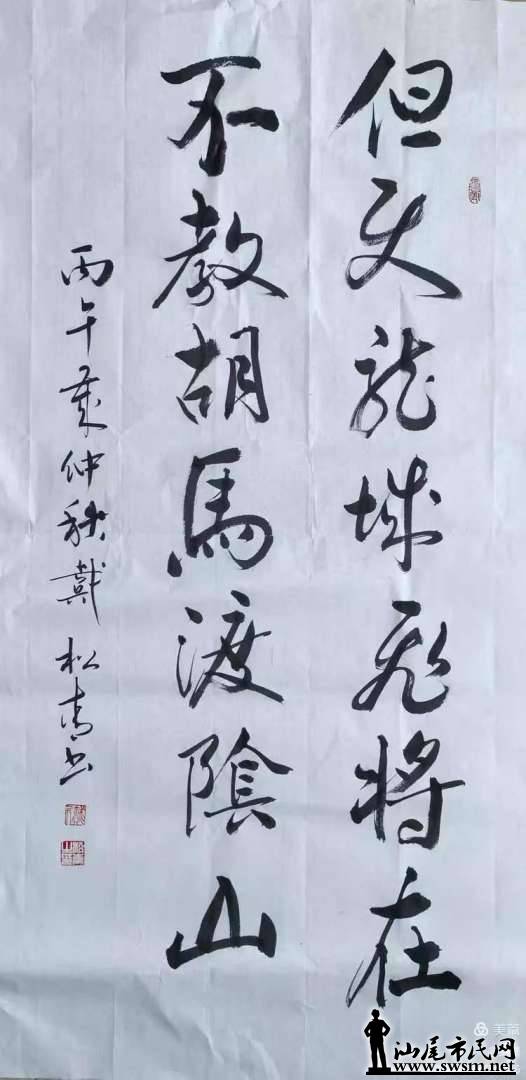 但使龍城飛將在
不教胡馬渡陰山
丙午歲仲秋戴松青书
美篇
汕尾市民网
www.swsm.net